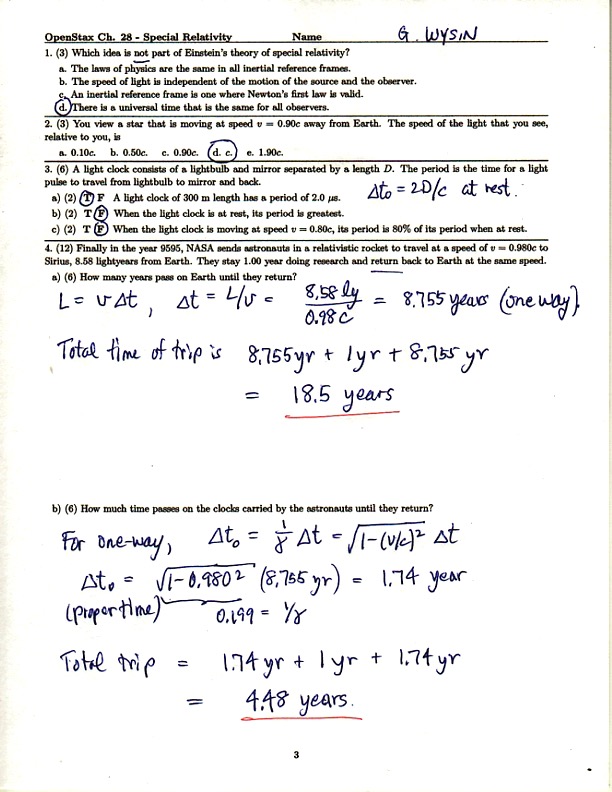 OpenStax Ch. 28 - Special Relativity Name G. WYSIN
1. (3) Which idea is not part of Einstein's theory of special relativity?
a. The laws of physics are the same in all inertial reference frames.
b. The speed of light is independent of the motion of the source and the observer.
c. An inertial reference frame is one where Newton's first law is valid.
d. There is a universal time that is the same for all observers.
2. (3) You view a star that is moving at speed v = 0.90c away from Earth. The speed of the light that you see,
relative to you, is
a. 0.10c. b. 0.50c. c. 0.90c. d. c. e. 1.90c.
3. (6) A light clock consists of a lightbulb and mirror separated by a length D. The period is the time for a light
pulse to travel from lightbulb to mirror and back.
Δt₀ = 2D/c at rest.
a) (2) T F A light clock of 300 m length has a period of 2.0 μs.
b) (2) T F When the light clock is at rest, its period is greatest.
c) (2) T F When the light clock is moving at speed v = 0.80c, its period is 80% of its period when at rest.
4. (12) Finally in the year 9595, NASA sends astronauts in a relativistic rocket to travel at a speed of v = 0.980c to
Sirius, 8.58 lightyears from Earth. They stay 1.00 year doing research and return back to Earth at the same speed.
a) (6) How many years pass on Earth until they return?
L = vΔt, Δt = L/v = 8.58 ly / 0.98 c = 8.755 years (one way)
Total time of trip is 8.755 yr + 1 yr + 8.755 yr
= 18.5 years
b) (6) How much time passes on the clocks carried by the astronauts until they return?
For one-way, Δt₀ = 1/γ Δt = √1-(v/c)² Δt
Δt₀ = √1-0.980² (8.755 yr) = 1.74 year
(proper time) 0.199 = 1/γ
Total trip = 1.74 yr + 1 yr + 1.74 yr
= 4.48 years.
3